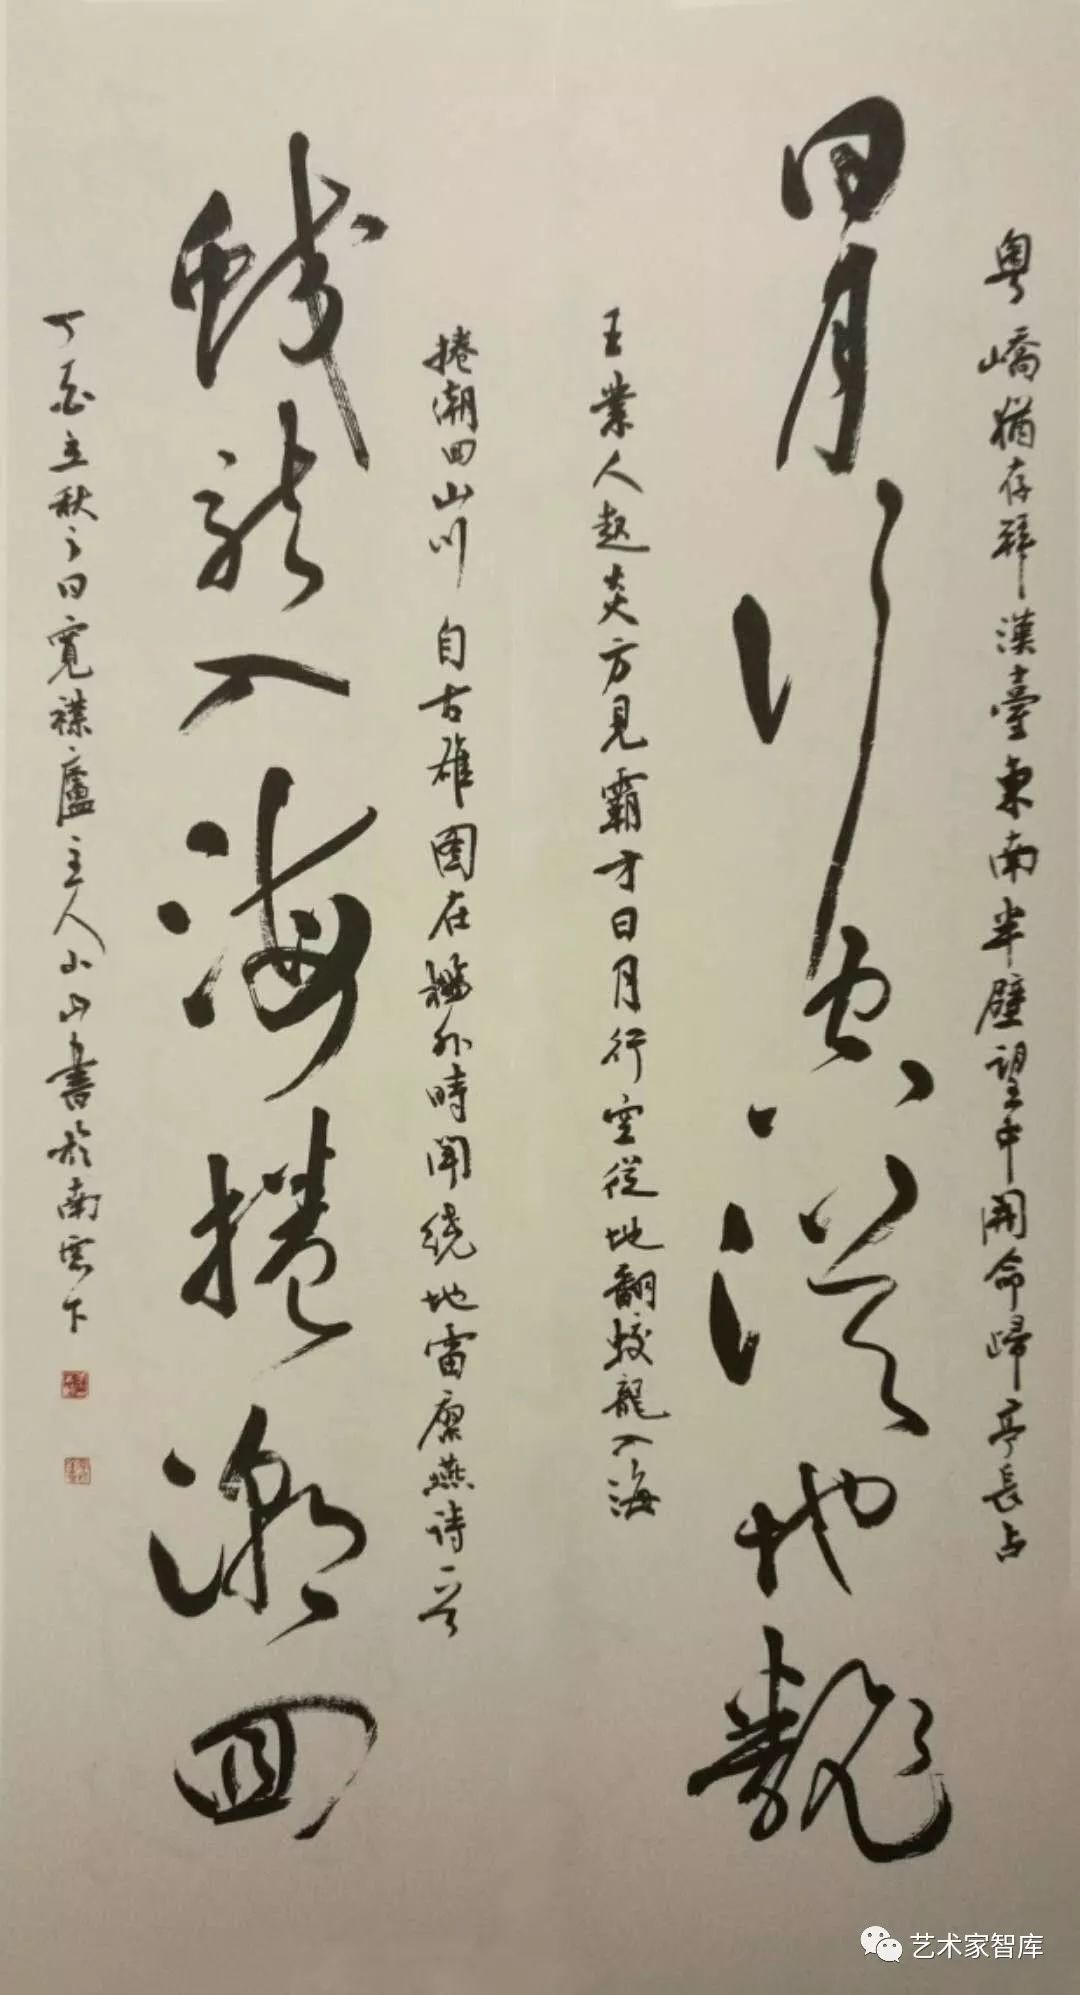 日月行空從地翻
粤嶠猶存拜漢臺東南半壁望中開命歸亭長占
王業人起炎方見霸才日月行空從地翻蛟龍入海
蛟龍入海捲潮回
捲潮回山川自古雄图在檻外時聞繞地雷廖燕詩一首
丁酉立秋之日寬襟廬主人小山書於南雲下
艺术家智库